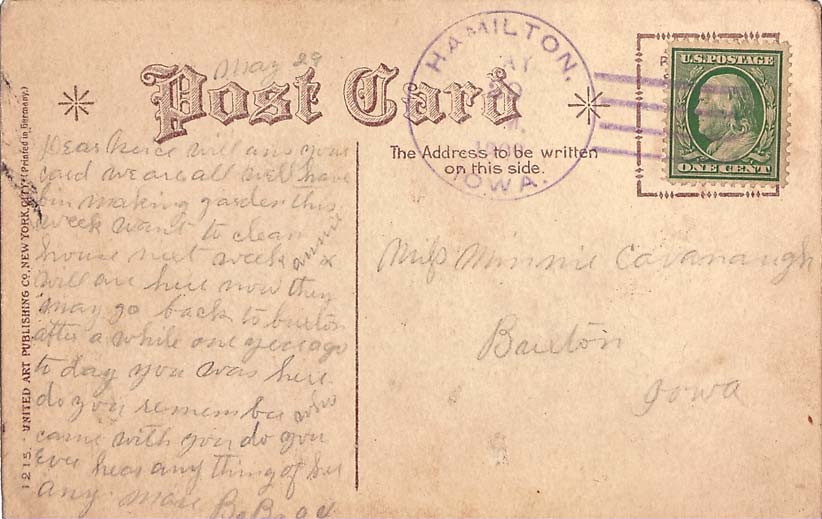 May 29
Post Card
HAMILTON,
IOWA.
U.S. POSTAGE
ONE CENT
The Address to be written
on this side.
1215. UNITED ART PUBLISHING CO., NEW YORK CITY. (Printed in Germany.)
Dear Neice will ans your
card we are all well have
bin making garden this
week want to clean
house next week annie x
will are here now they
may go back to buxton
after a while one year ago
to day you was here
do you remember who
came with you do you
ever hear any thing of her
any more
Miss Minnie Cavanaugh
Buxton
Iowa